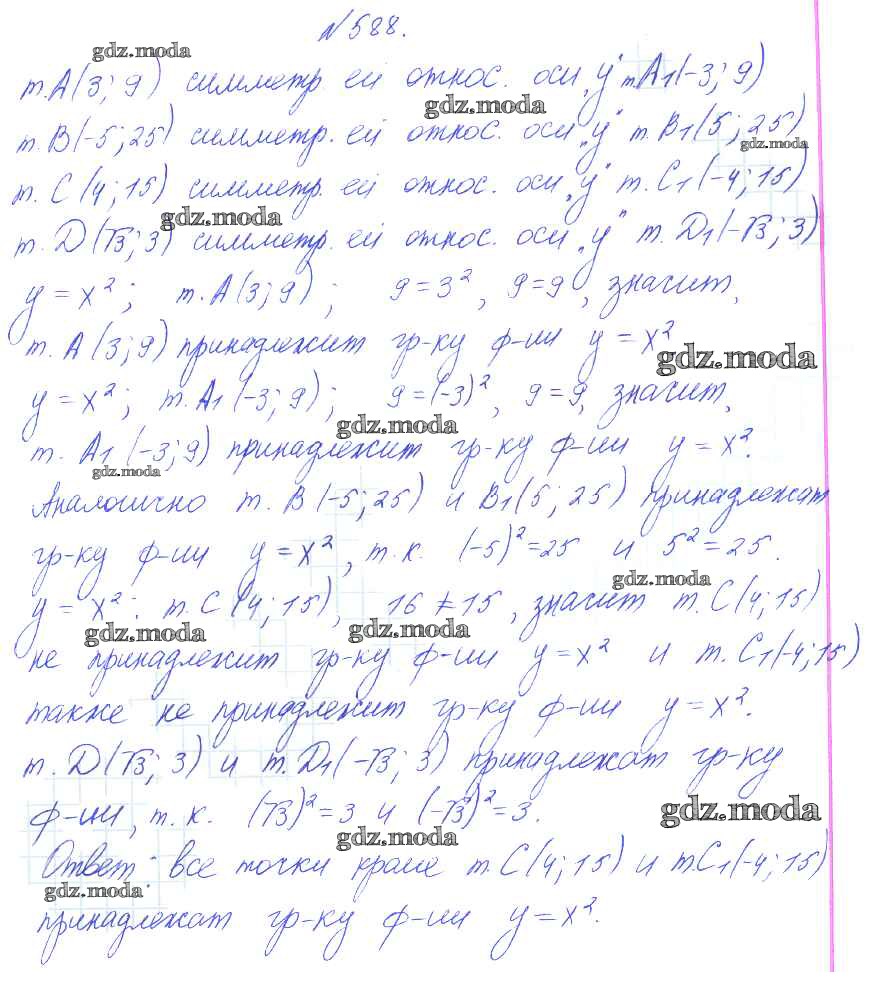 №588.
т. А(3; 9) симметр. ей относ. оси „у" т. А₁(-3; 9)
т. В(-5; 25) симметр. ей относ. оси „у" т. В₁(5; 25)
т. С(4; 15) симметр. ей относ. оси „у" т. С₁(-4; 15)
т. D(√3; 3) симметр. ей относ. оси „у" т. D₁(-√3; 3)
у = х²; т. А(3; 9); 9 = 3², 9 = 9, значит,
т. А(3; 9) принадлежит гр-ку ф-ии у = х²
у = х²; т. А₁(-3; 9); 9 = (-3)², 9 = 9, значит,
т. А₁(-3; 9) принадлежит гр-ку ф-ии у = х².
Аналогично т. В(-5; 25) и В₁(5; 25) принадлежат
гр-ку ф-ии у = х², т. к. (-5)² = 25 и 5² = 25.
у = х²: т. С(4; 15), 16 ≠ 15, значит т. С(4; 15)
не принадлежит гр-ку ф-ии у = х² и т. С₁(-4; 15)
также не принадлежит гр-ку ф-ии у = х².
т. D(√3; 3) и т. D₁(-√3; 3) принадлежат гр-ку
ф-ии, т. к. (√3)² = 3 и (-√3)² = 3.
Ответ: все точки кроме т. С(4; 15) и т. С₁(-4; 15)
принадлежат гр-ку ф-ии у = х².
gdz.moda
gdz.moda
gdz.moda
gdz.moda
gdz.moda
gdz.moda
gdz.moda
gdz.moda
gdz.moda
gdz.moda
gdz.moda
gdz.moda
gdz.moda